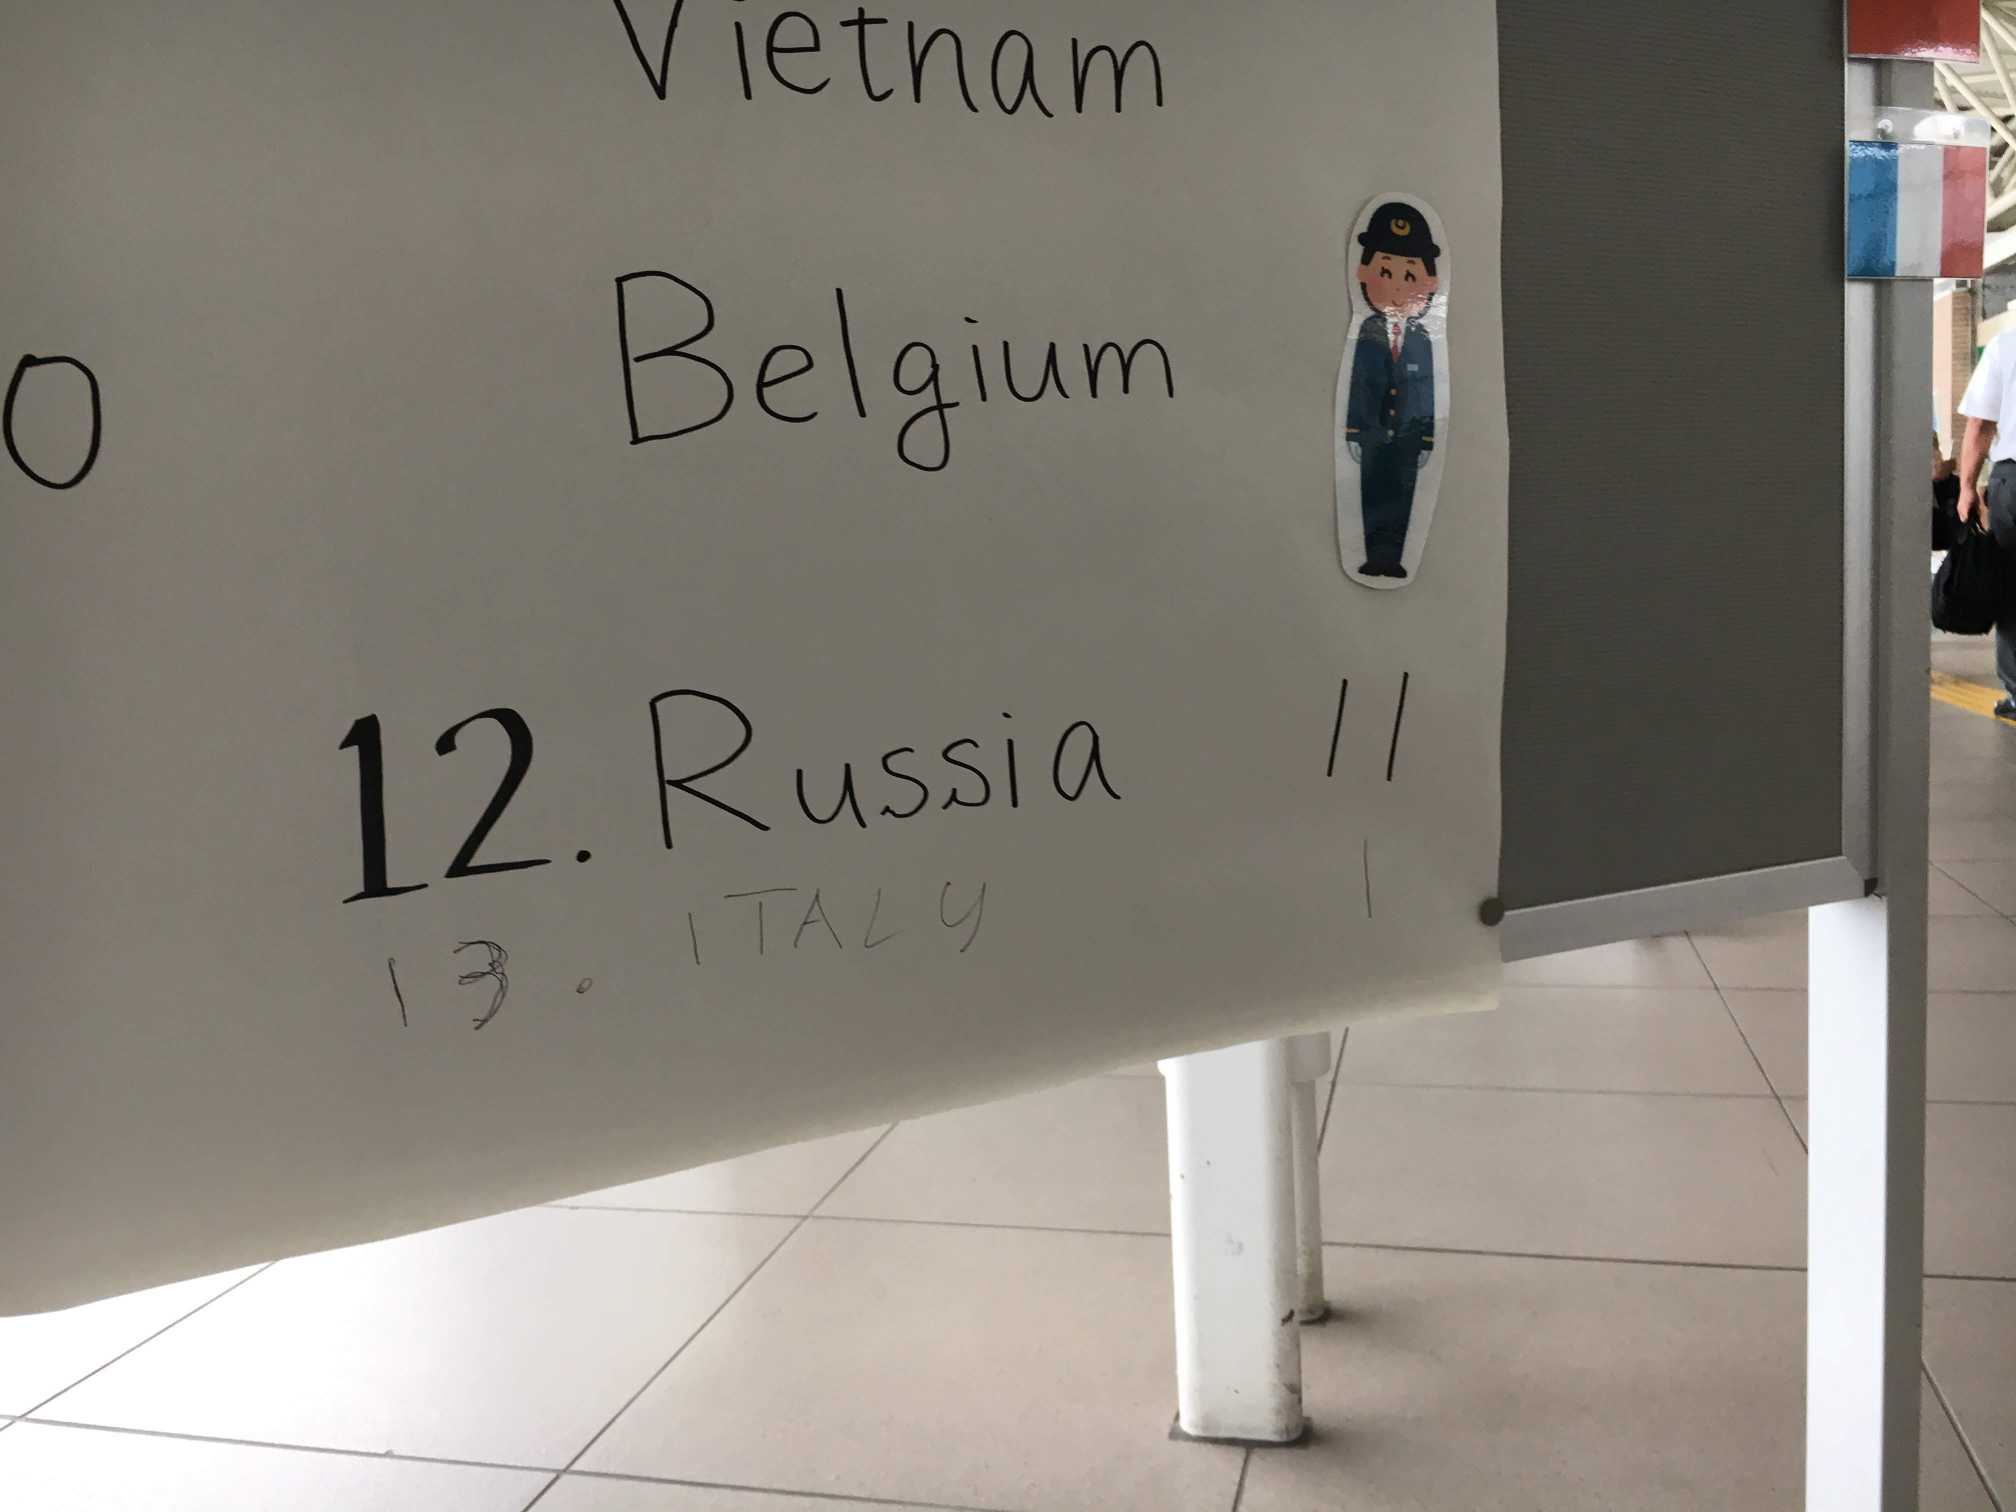 Vietnam
0 Belgium
12. Russia 11
13. ITALY 1